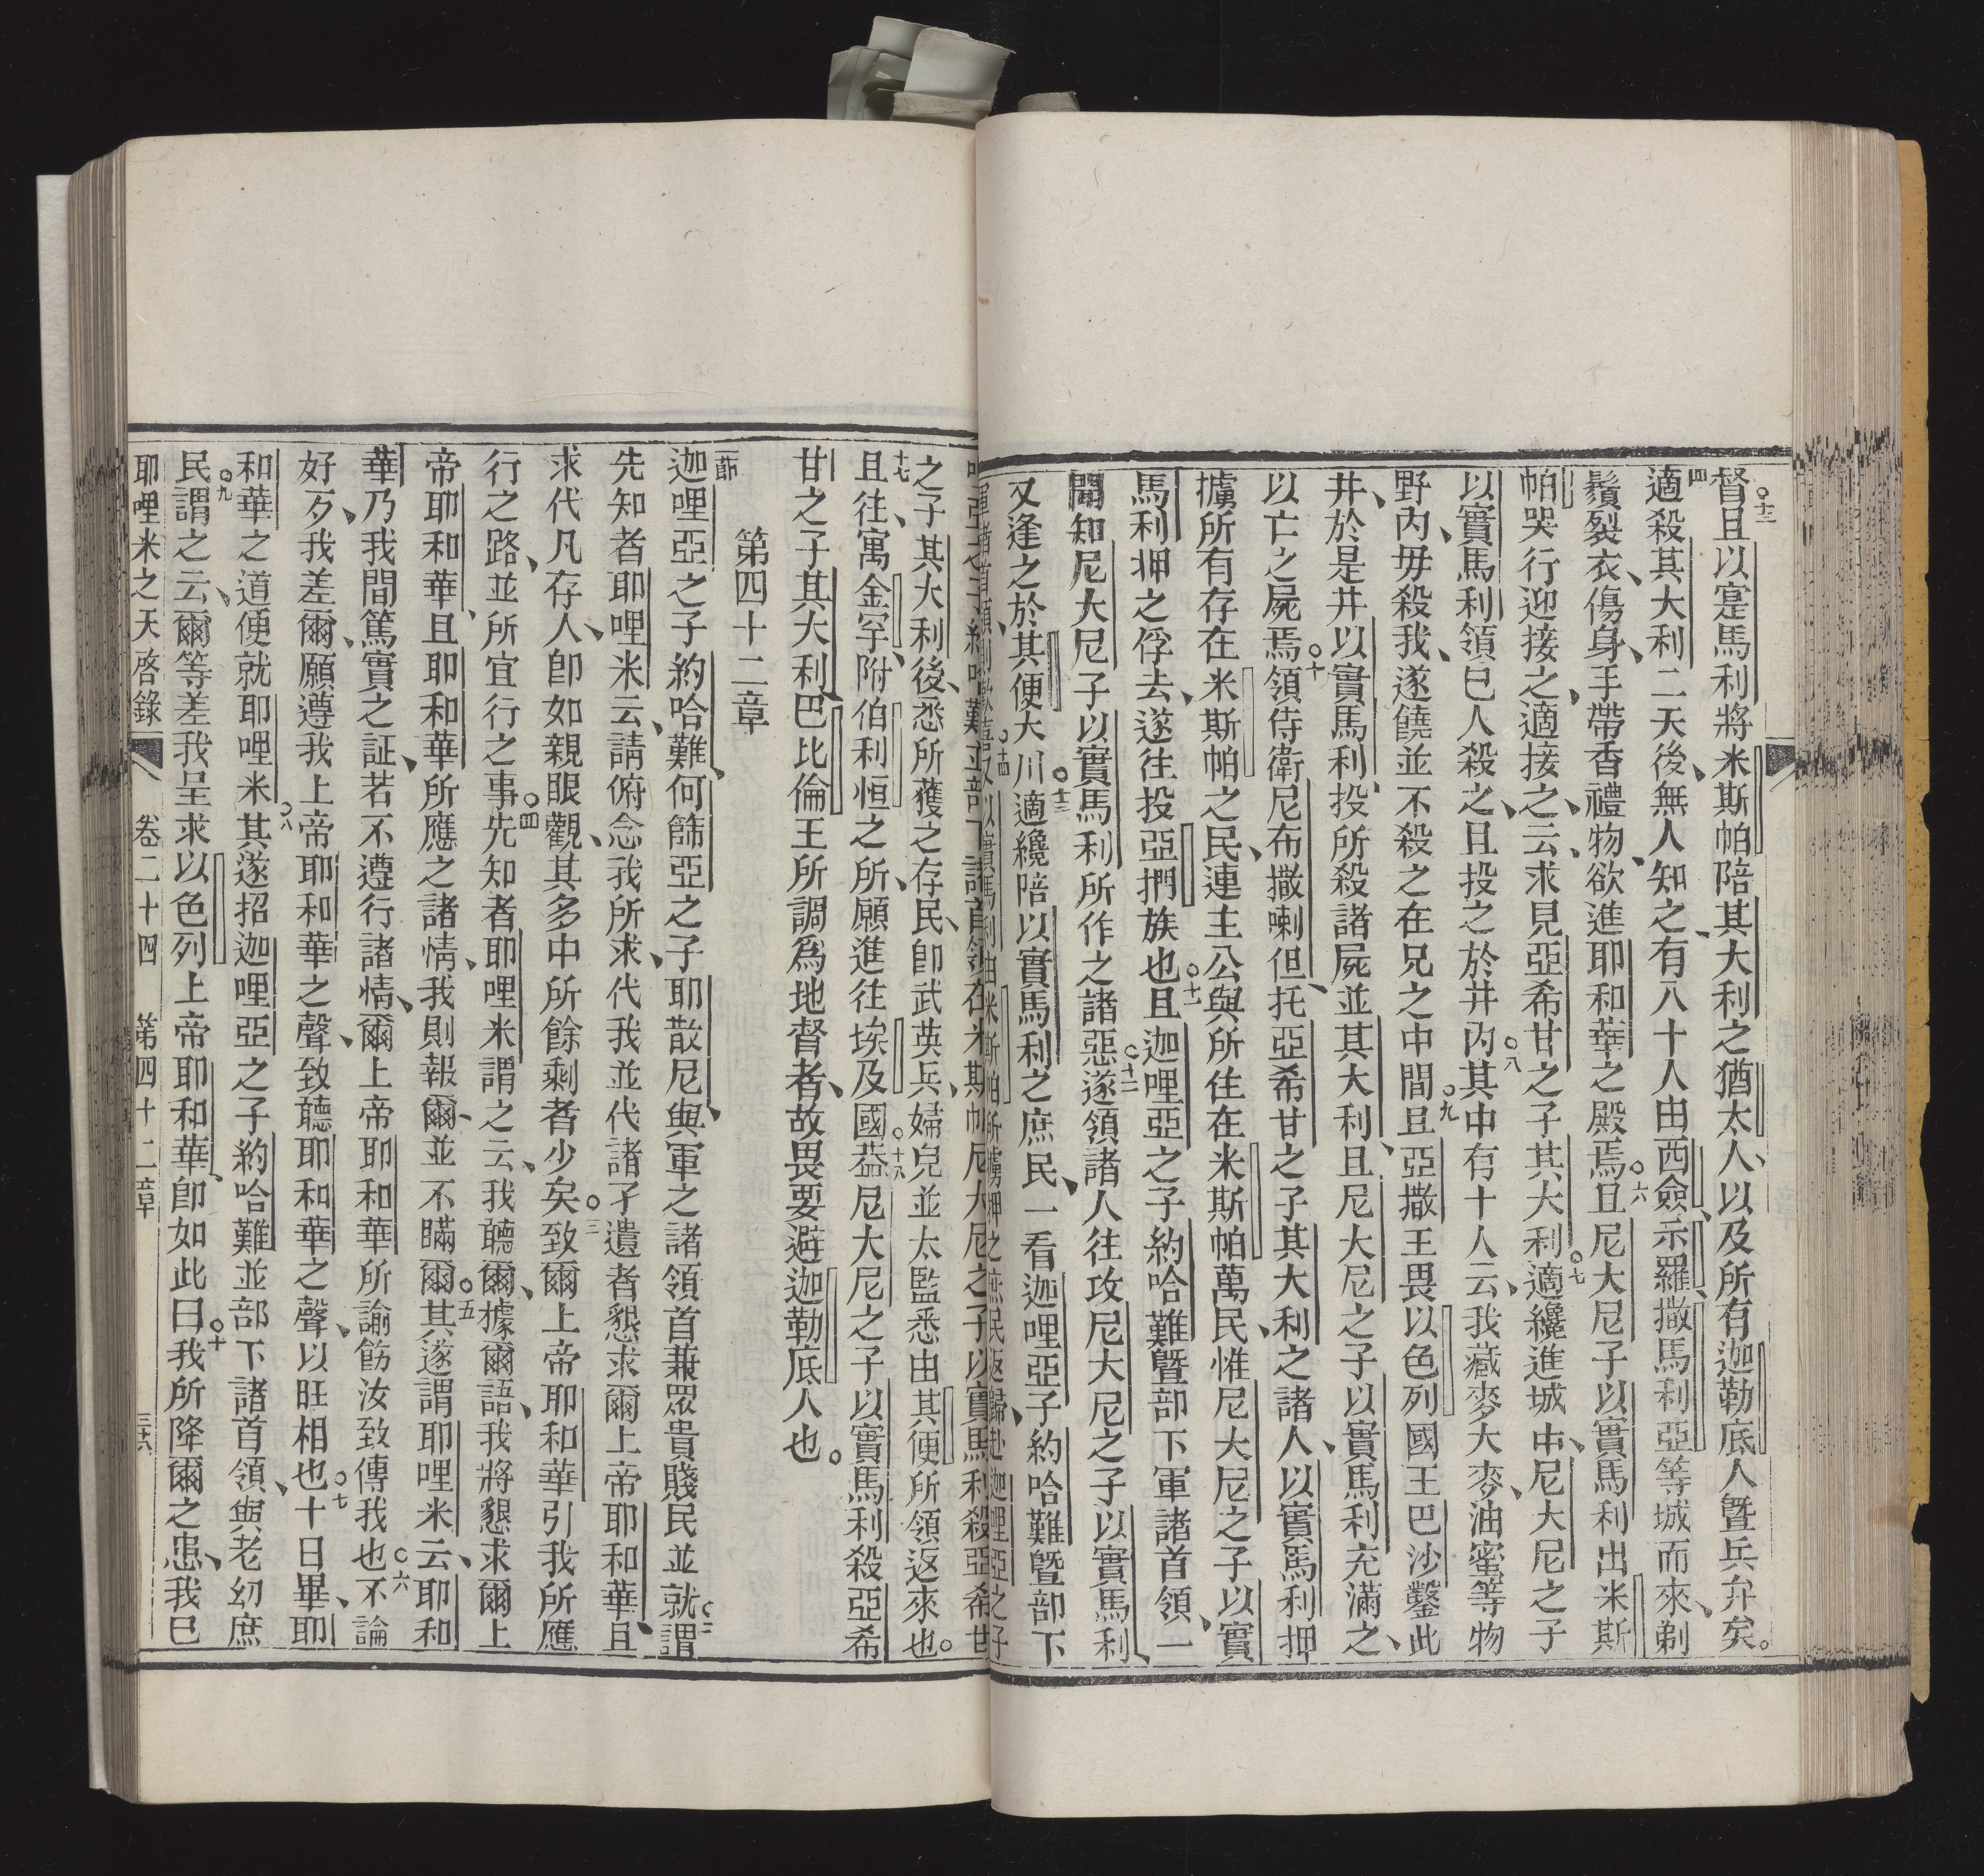 督且以寔馬利將米斯帕陪其大利之猶太人、以及所有迦勒底人曁兵弁矣。
四適殺其大利二天後、無人知之、有八十人由西僉、示羅、撒馬利亞等城而來、剃
鬚裂衣、傷身、手帶香禮物、欲進耶和華之殿焉。六且尼大尼子以實馬利出米斯
帕哭行迎接之、適接之、云、求見亞希甘之子其大利。七適纔進城中、尼大尼之子
以實馬利領己人殺之、且投之於井內。八其中有十人云、我藏麥大麥、油蜜等物
野內、毋殺我、遂饒並不殺之在兄之中間。九且亞撒王畏以色列國王巴沙鑿此
井、於是井以實馬利、投所殺諸屍並其大利、且尼大尼之子以實馬利充滿之、
以亡之屍焉。十領侍衛尼布撒喇但、托亞希甘之子其大利之諸人、以實馬利押
擄所有存在米斯帕之民、連主公與所住在米斯帕萬民、惟尼大尼之子以實
馬利押之俘去、遂往投亞捫族也。十一且迦哩亞之子約哈難曁部下軍諸首領、一
聞知尼大尼子以實馬利所作之諸惡、十二遂領諸人往攻尼大尼之子以實馬利、
又逢之於其便大川。十三適纔陪以實馬利之庶民、一看迦哩亞子約哈難曁部下
之子其大利後、悉所獲之存民、卽武英兵、婦兒並太監悉由其便所領返來也。
十七且往、寓金罕、附伯利恒之所、願進往埃及國。十八葢尼大尼之子以實馬利殺亞希
甘之子其大利、巴比倫王所調爲地督者、故畏要避迦勒底人也。
第四十二章
一節迦哩亞之子約哈難、何篩亞之子耶散尼、與軍之諸領首兼眾貴賤民並就二謂
先知者耶哩米云、請俯念我所求、代我並代諸孑遺者懇求爾上帝耶和華、且
求代凡存人、卽如親眼觀、其多中所餘剩者少矣。三致爾上帝耶和華引我所應
行之路、並所宜行之事。四先知者耶哩米謂之云、我聽爾、據爾語、我將懇求爾上
帝耶和華、且耶和華所應之諸情、我則報爾、並不瞞爾。五其遂謂耶哩米云、耶和
華乃我間篤實之証、若不遵行諸情、爾上帝耶和華所諭飭汝致傳我也。六不論
好歹、我差爾、願遵我上帝耶和華之聲、致聽耶和華之聲、以旺相也。七十日畢、耶
和華之道便就耶哩米。八其遂招迦哩亞之子約哈難並部下諸首領、與老幼庶
民九謂之云、爾等差我呈求以色列上帝耶和華、卽如此曰。十我所降爾之患、我已
耶哩米之天啓錄 卷二十四 第四十二章 三六